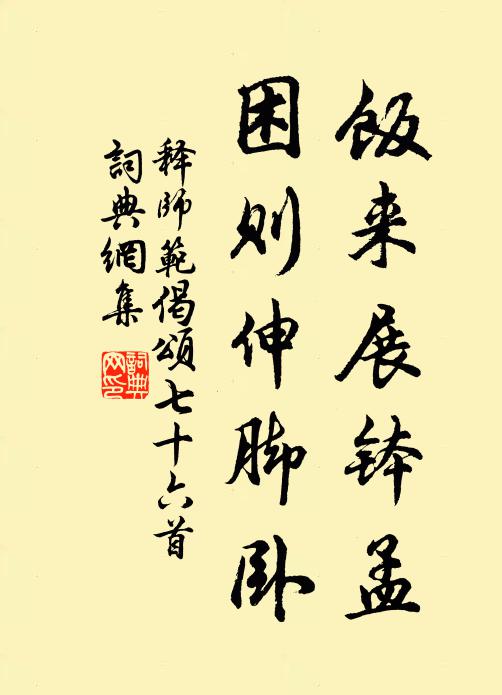 饭来展钵盂
困则伸脚卧
释師範偈頌七十六首
詞典網集
詞典网印